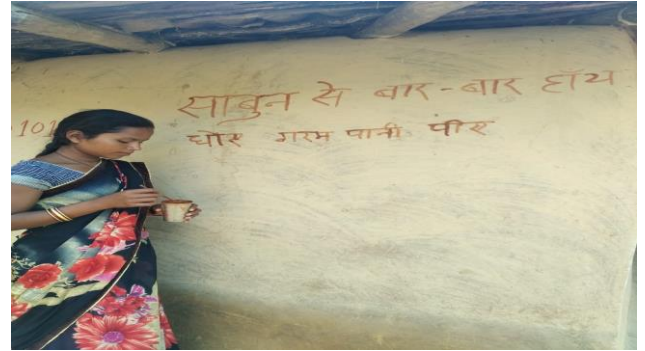 साबुन से बार-बार हाँथ
धोए गरम पानी पीए
101